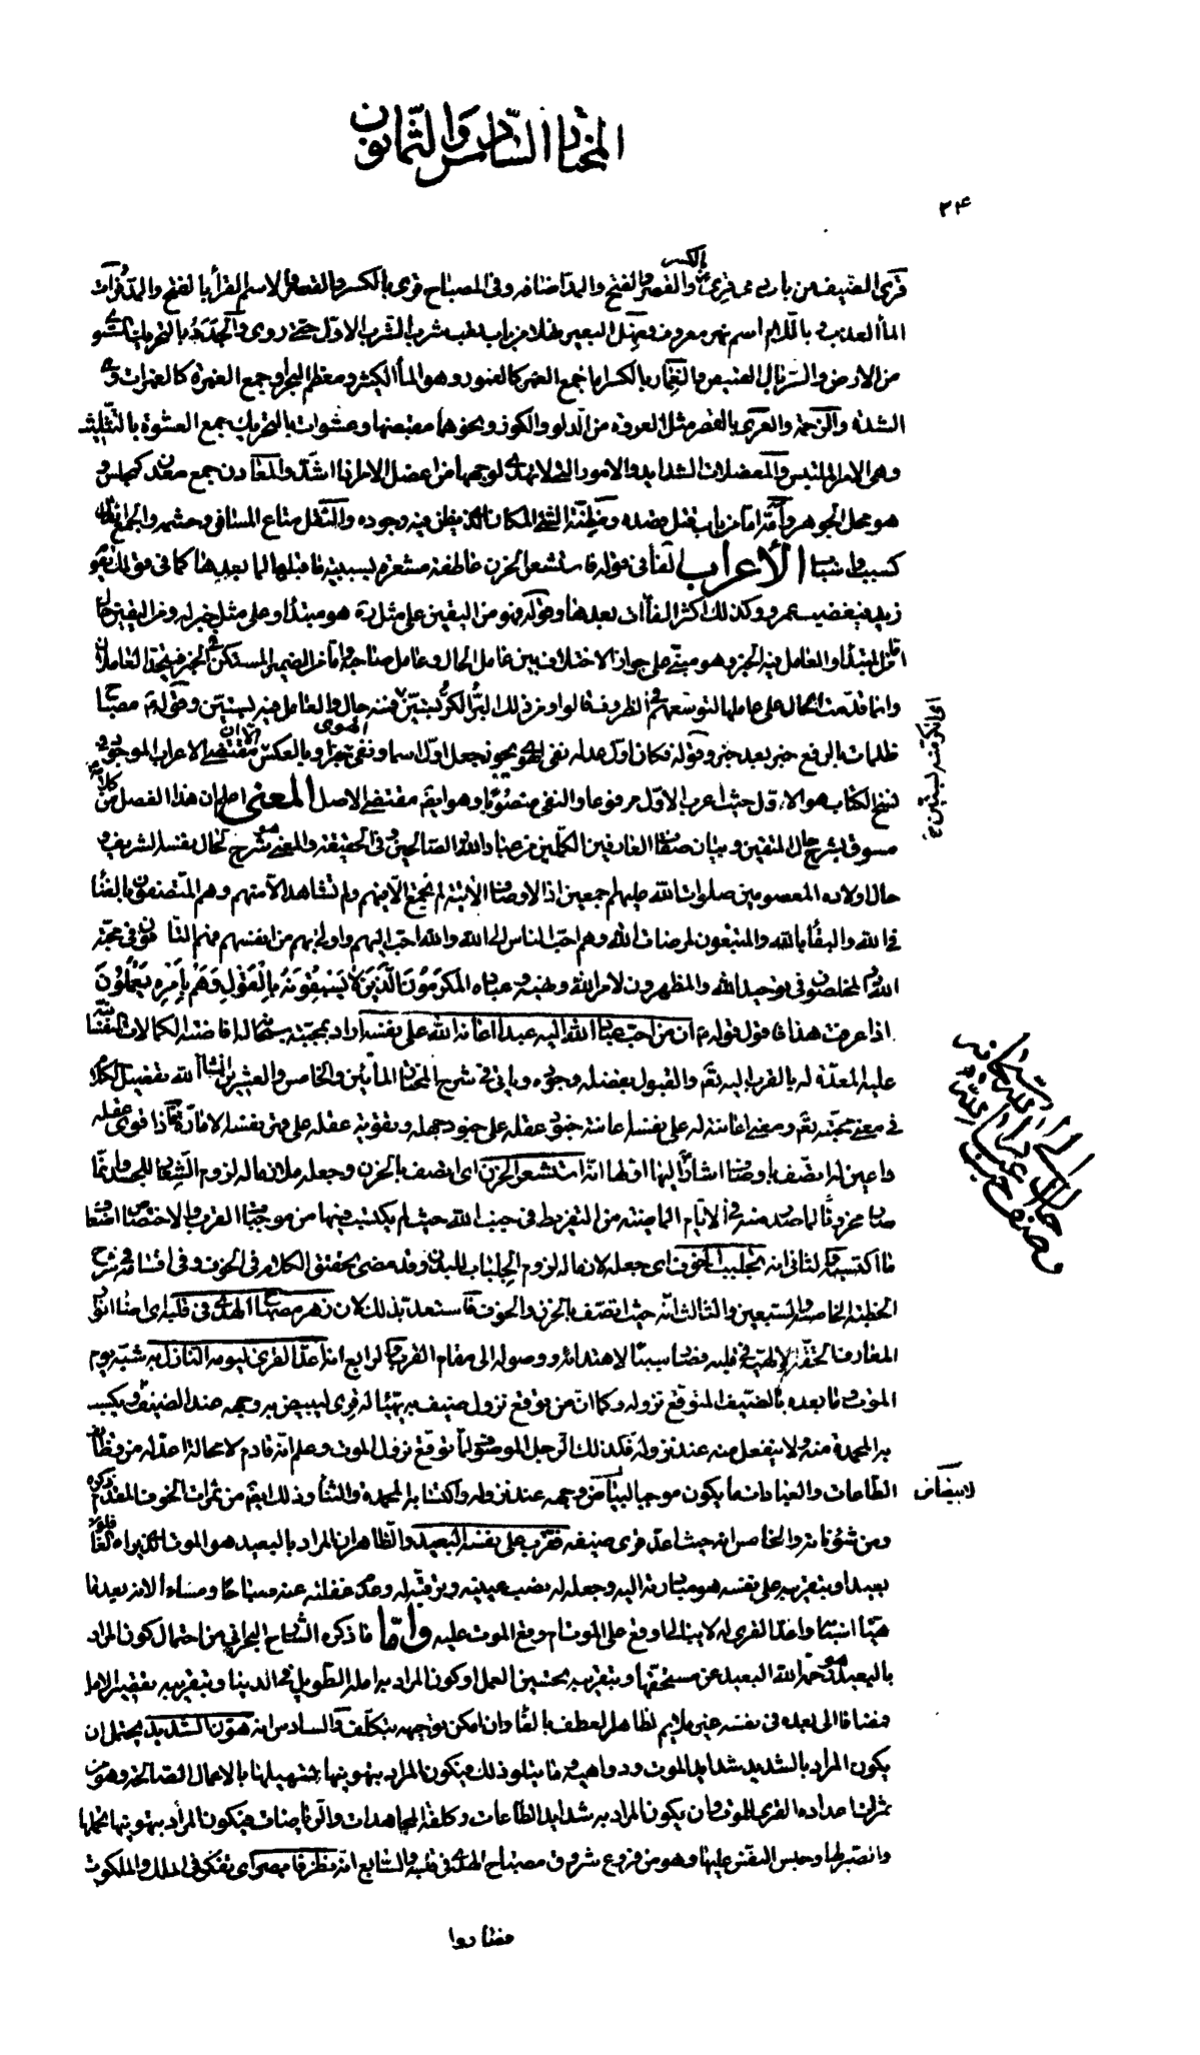 المختار السادس والثمانون
۲۴
قرى الضيف من باب رمى قرى بالكسر والقصر والفتح والمد اضافه وفى المصباح قرى بالكسر والقصر والاسم القراء بالفتح والمد و
الماء العذب و باللام اسم نهر معروف و نهل البعير نهلا من باب تعب شرب الشرب الاول حتى روى والجدد بالتحريك
من الارض والسربال القميص والغمار بالكسر اما جمع الغمر كالغمور وهو الماء الكثير ومعظم البحر او جمع الغمرة كالغمرات وهى
الشدة والزحمة والعرى بالقصر مثل العروة من الدلو والكوز ونحوهما مقبضها وعشوات بالتحريك جمع العشوة بالتثليث
وهى الامر الملتبس والمعضلات الشدايد والامور التى لا يهتدى لوجهها من اعضل الامر اذا اشتد والمعادن جمع معدن كمجلس و
هو محل الجوهر وامه اما من باب قتل قصده ومظنة الشئ المكان الذى يظن فيه وجوده والثقل متاع المسافر وحشمه والجمع اثقال
كسبب واسباب الأعراب الفاء فى قوله فاستشعر الحزن عاطفة مشعرة بسببية ما قبلها لما بعدها كما فى قولك يقوم
زيد فيغضب عمرو وكذلك اكثر الفاءات بعدها وقوله فهو من اليقين على مثل هو مبتدا وعلى مثل خبر له ومن اليقين حال
اما من المبتدا والعامل فيه الخبر وهو مبنى على جواز الاختلاف بين عامل الحال وعامل صاحبه واما من الضمير المستكن فى الخبر فيتحد العاملان
وانما قدمت الحال على عاملها لتوسعهم فى الظروف قالوا ومن ذلك البر الكر بستين فمنه حال والعامل فيه بستين وقوله مصباح
ظلمات بالرفع خبر بعد خبر وقوله فكان اول عدله نفى الهوى يجوز جعل اول اسما ونفى خبرا وبالعكس الا ان مقتضى الاعراب الموجود فى
نسخ الكتاب هو الاول حيث اعرب الاول مرفوعا والنفى منصوبا وهو ايضا مقتضى الاصل المعنى اعلم ان هذا الفصل من كلامه
مسوق لشرح حال المتقين وبيان صفات العارفين الكملين من عباد الله الصالحين وفى الحقيقة والمعنى هو شرح لحال نفسه الشريف و
حال اولاده المعصومين صلوات الله عليهم اجمعين اذ الاوصاف الاتية لم تجتمع الا فيهم ولم تشاهد الا منهم وهم المتصفون بالفناء
فى الله والبقاء بالله والمتبعون لمرضات الله وهم احب الناس الى الله والله احب اليهم واولى بهم من انفسهم فهم التامون فى محبة
الله والمخلصون فى توحيد الله والمظهرون لامر الله ونهيه وعباده المكرمون الذين لا يسبقونه بالقول وهم بامره يعملون
اذا عرفت هذا فاقول قوله ان من احب عباد الله اليه عبدا اعانه الله على نفسه اراد بمحبته سبحانه له افاضة الكمالات النفسانية
عليه المعدة له بالقرب اليه تعالى والقبول بفضله وجوده وياتى فى شرح المختار المأتين والخامس والعشرين انشاء الله تفصيل الكلام
فى معنى محبته تعالى ومعنى اعانته له على نفسه اعانته جنود عقله على جنود جهله وتقوية عقله على قهر نفسه الامارة فاذا قوى عقله
واعين له اتصف باوصاف اشار اليها اولها انه استشعر الحزن اى اتصف بالحزن وجعله ملازما له لزوم الشعار للجسد وانما
صار محزونا لما صدر منه فى الايام الماضية من التفريط فى جنب الله حيث لم يكتسب فيها من موجبات القرب والاختصاص اضعاف
ما اكتسبه والثانى انه تجلبب الخوف اى جعله لازما له لزوم الجلباب للبدن وقد مضى تحقيق الكلام فى الخوف وفى اقسامه فى شرح
الخطبة الخامسة والسبعين والثالث انه حيث اتصف بالحزن والخوف فاستعد بذلك لان زهر مصباح الهدى فى قلبه اى اضاء انوار
المعارف الحقة الالهية فى قلبه فصار سببا لاهتدائه ووصوله الى مقام القرب والرابع انه اعد القرى ليومه النازل به شبه يوم
الموت وما بعده بالضيف المتوقع نزوله وكما ان من توقع نزول ضيف به يتهيأ له قرى ليبيض به وجهه عند الضيف ويكسب
به المحمدة منه ولا ينفعل منه عند نزوله فكذلك الرجل الموصوف لما توقع نزول الموت وعلم انه قادم لا محالة اعد له من وظائف
الطاعات والعبادات ما يكون موجبا لبياض وجهه عند نزوله واكتسابه المحمدة والثناء وذلك ايضا من ثمرات الخوف المقدم ذكره
ومن شئوناته والخامس انه حيث اعد قرى ضيفه فقرب على نفسه البعيد والظاهر ان المراد بالبعيد هو الموت الذى يراه الغافلون
بعيدا وبتقريبه على نفسه هو مبادرته اليه وجعله له نصب عينيه وترقبه له وعدم غفلته عنه صباحا ومساء لانه بعد ما
هيأ اسبابه واعد القرى له لا يبالى اوقع على الموت ام وقع الموت عليه واما ما ذكره الشارح البحرانى من احتمال كون المراد
بالبعيد هو رحمة الله البعيدة عن مستحقها وبتقريبه تحسين العمل او كون المراد به امله الطويل فى الدنيا وبتقريبه تقصير الامل
فمضافا الى بعده فى نفسه غير ملايم لظاهر العطف بالفاء وان امكن توجيهه بتكلف والسادس انه هون الشديد يحتمل ان
يكون المراد بالشديد شدايد الموت ودواهيه وما يتلو ذلك فيكون المراد بتهوينها تسهيلها بالاعمال الصالحة وهو من
ثمرات اعداده القرى للموت وان يكون المراد به شدايد الطاعات وكلفة المجاهدات والرياضات فيكون المراد بتهوينها تحملها
والصبر لها وحبس النفس عليها وهو من فروع شروق مصباح الهدى فى قلبه والسابع انه نظر فابصر اى تفكر فى الملك والملكوت
اى الكر منه بستين
لابيضاض